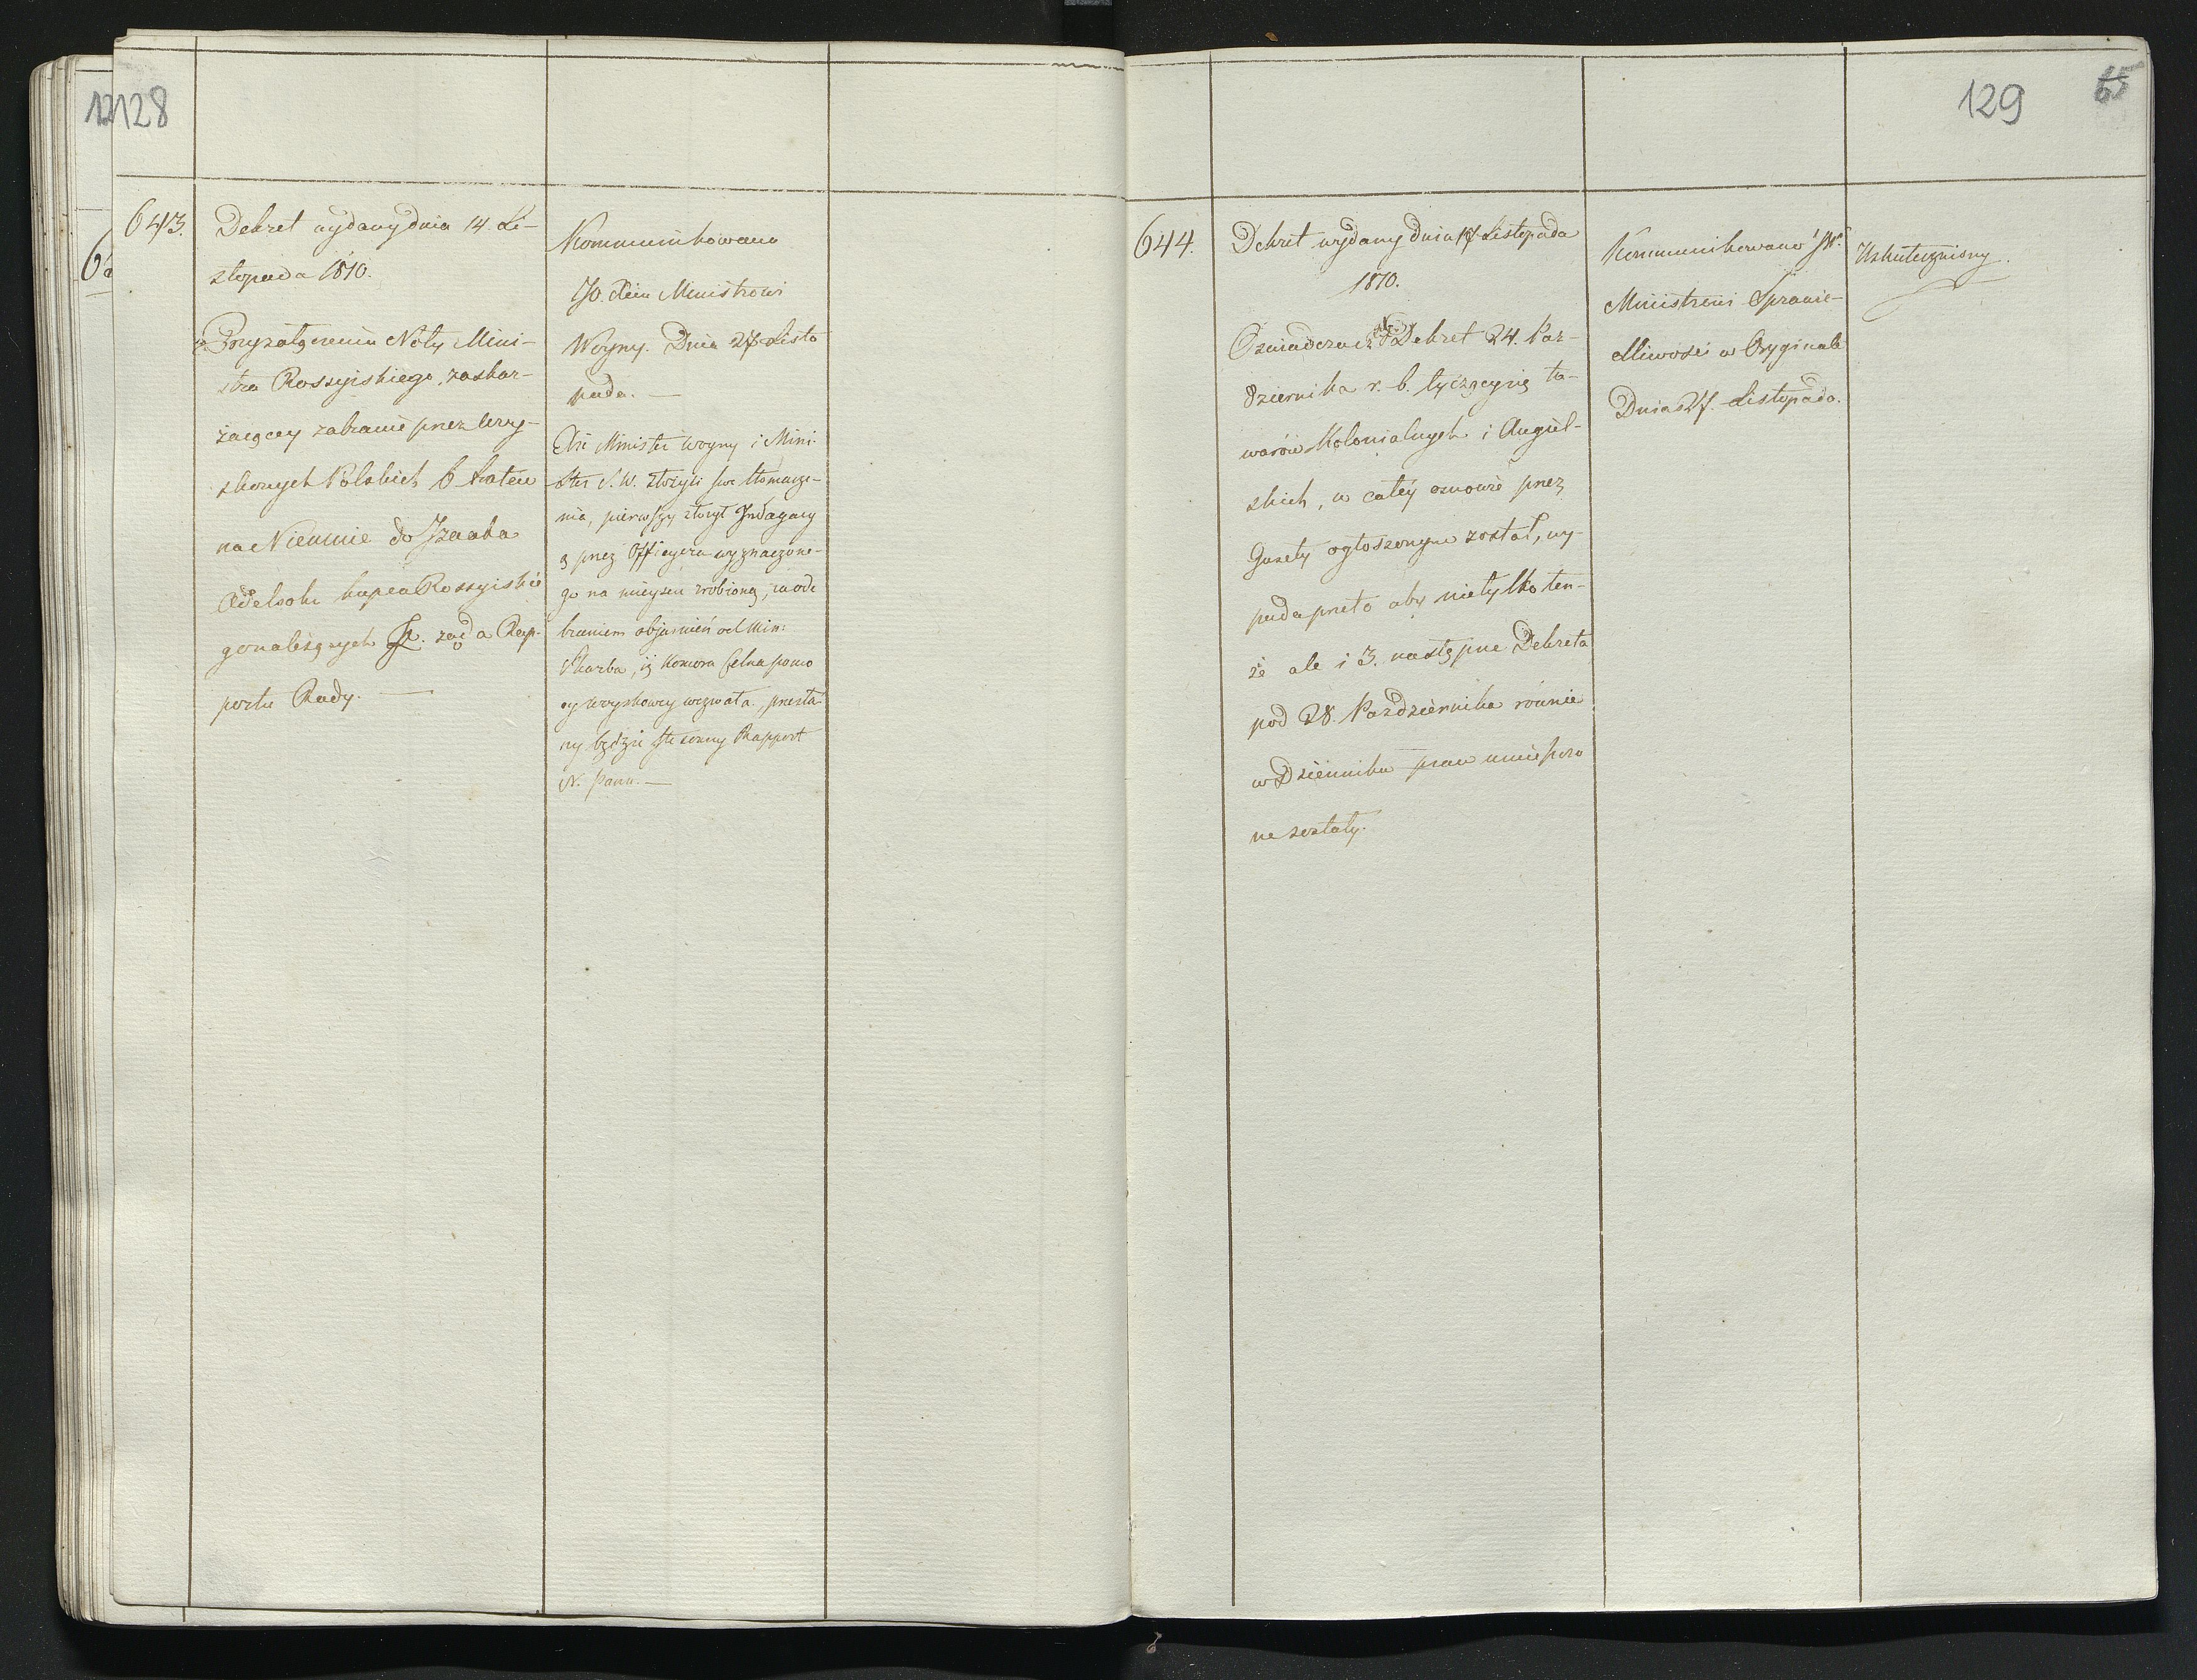 128
643.
Dekret wydany dnia 14. Li-
stopada 1810.
Przyzałączeniu Noty Mini-
stra Rossyiskiego, zaskar-
żaiącey zabranie przez woy-
skowych Polskich 6 tratew
na Niemnie do Izaaka
Adelsohn kupca Rossyiskie
go należących JK. żąda Rap-
portu Rady. —
Kommunikowano
JO. Xciu Ministrowi
Woyny. Dnia 27 Listo
pada. —
Xże Minister woyny i Mini-
ster S. W. złożyli swe tłomacze-
nia, pierwszy złożył Indagacy
ą przez Officyera wyznaczone-
go na mieyscu zrobioną, za ode
braniem objaśnień od Min:
Skarbu, iż Komora Celna pomo
cy woyskowey wezwała, przesła-
ny będzie stosowny Rapport
N. Panu. —
129
65
644.
Dekret wydany dnia 17 Listopada
1810.
Oświadcza iż Dekret 24. Paź-
dziernika r. b. tyczący się to-
warów Kolonialnych i Angiel-
skich, w całey osnowie przez
Gazety ogłoszonym został, wy-
pada przeto aby nietylko ten-
że ale i 3. następne Dekreta
pod 28. Października równie
w Dzienniku praw umieszczo
ne zostały.
Kommunikowano JW.
Ministrowi Sprawie-
dliwości w Oryginale
Dnia 27. Listopada.
Uskuteczniony.